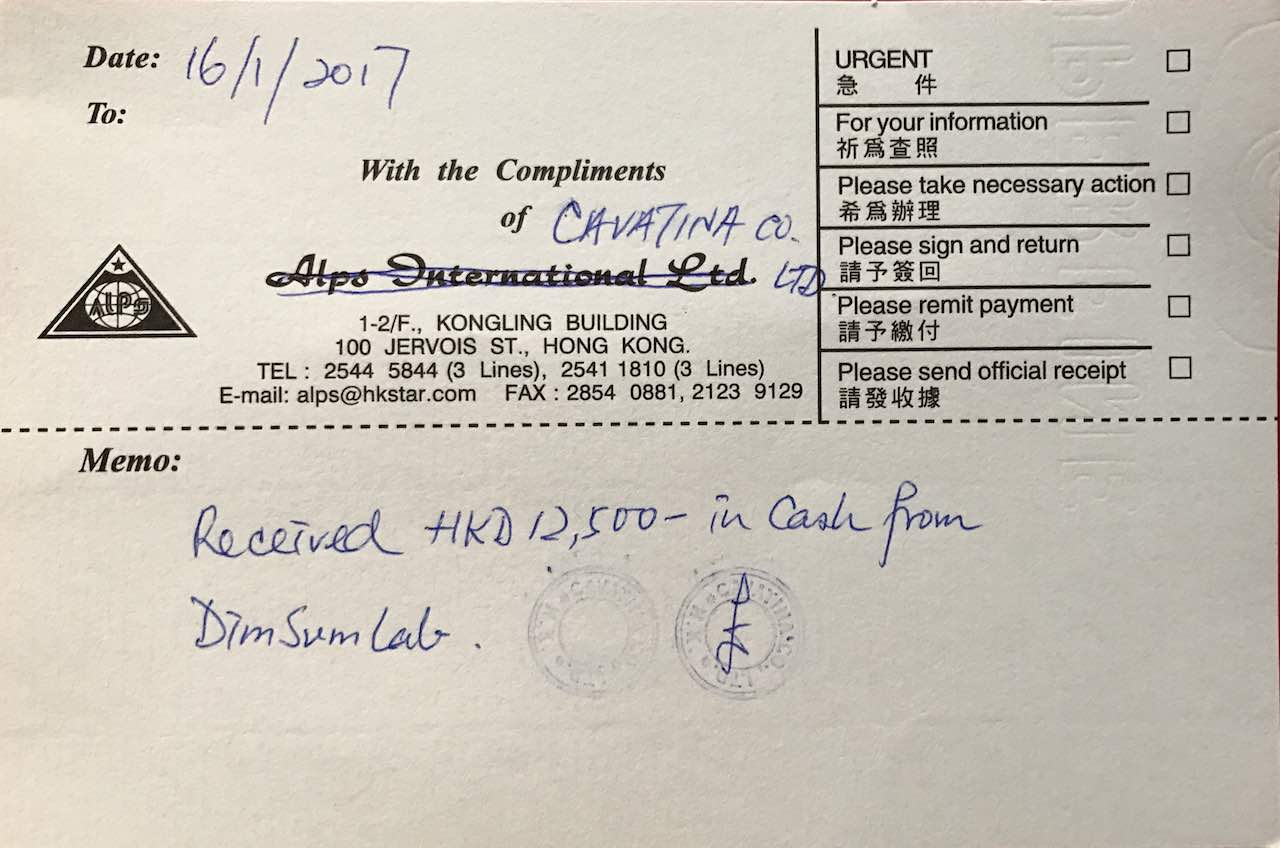 Date: 16/1/2017
To:
With the Compliments
of CAVATINA CO.
Alps International Ltd. LTD
ALPS
1-2/F., KONGLING BUILDING
100 JERVOIS ST., HONG KONG.
TEL : 2544 5844 (3 Lines), 2541 1810 (3 Lines)
E-mail: alps@hkstar.com FAX : 2854 0881, 2123 9129
URGENT
急 件
For your information
祈爲查照
Please take necessary action
希爲辦理
Please sign and return
請予簽回
Please remit payment
請予繳付
Please send official receipt
請發收據
Memo:
Received HKD 12,500- in Cash from
DimSumLab.
CAVATINA CO. LTD. H.K.